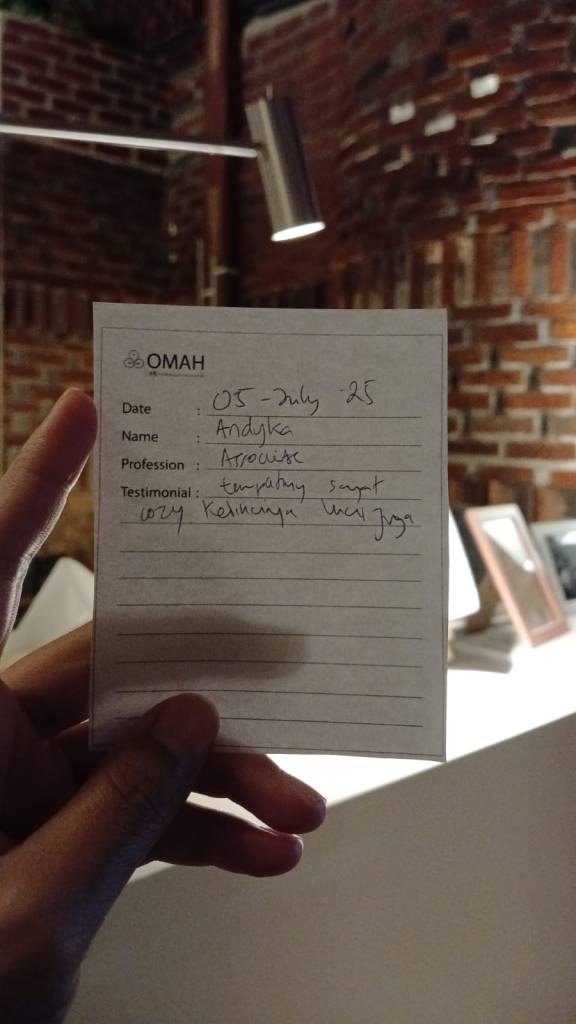 OMAH
Date : 05 - July - 25
Name : Andyka
Profession : Associate
Testimonial : tempatny sangat
cozy Kelincinya lucu Juga